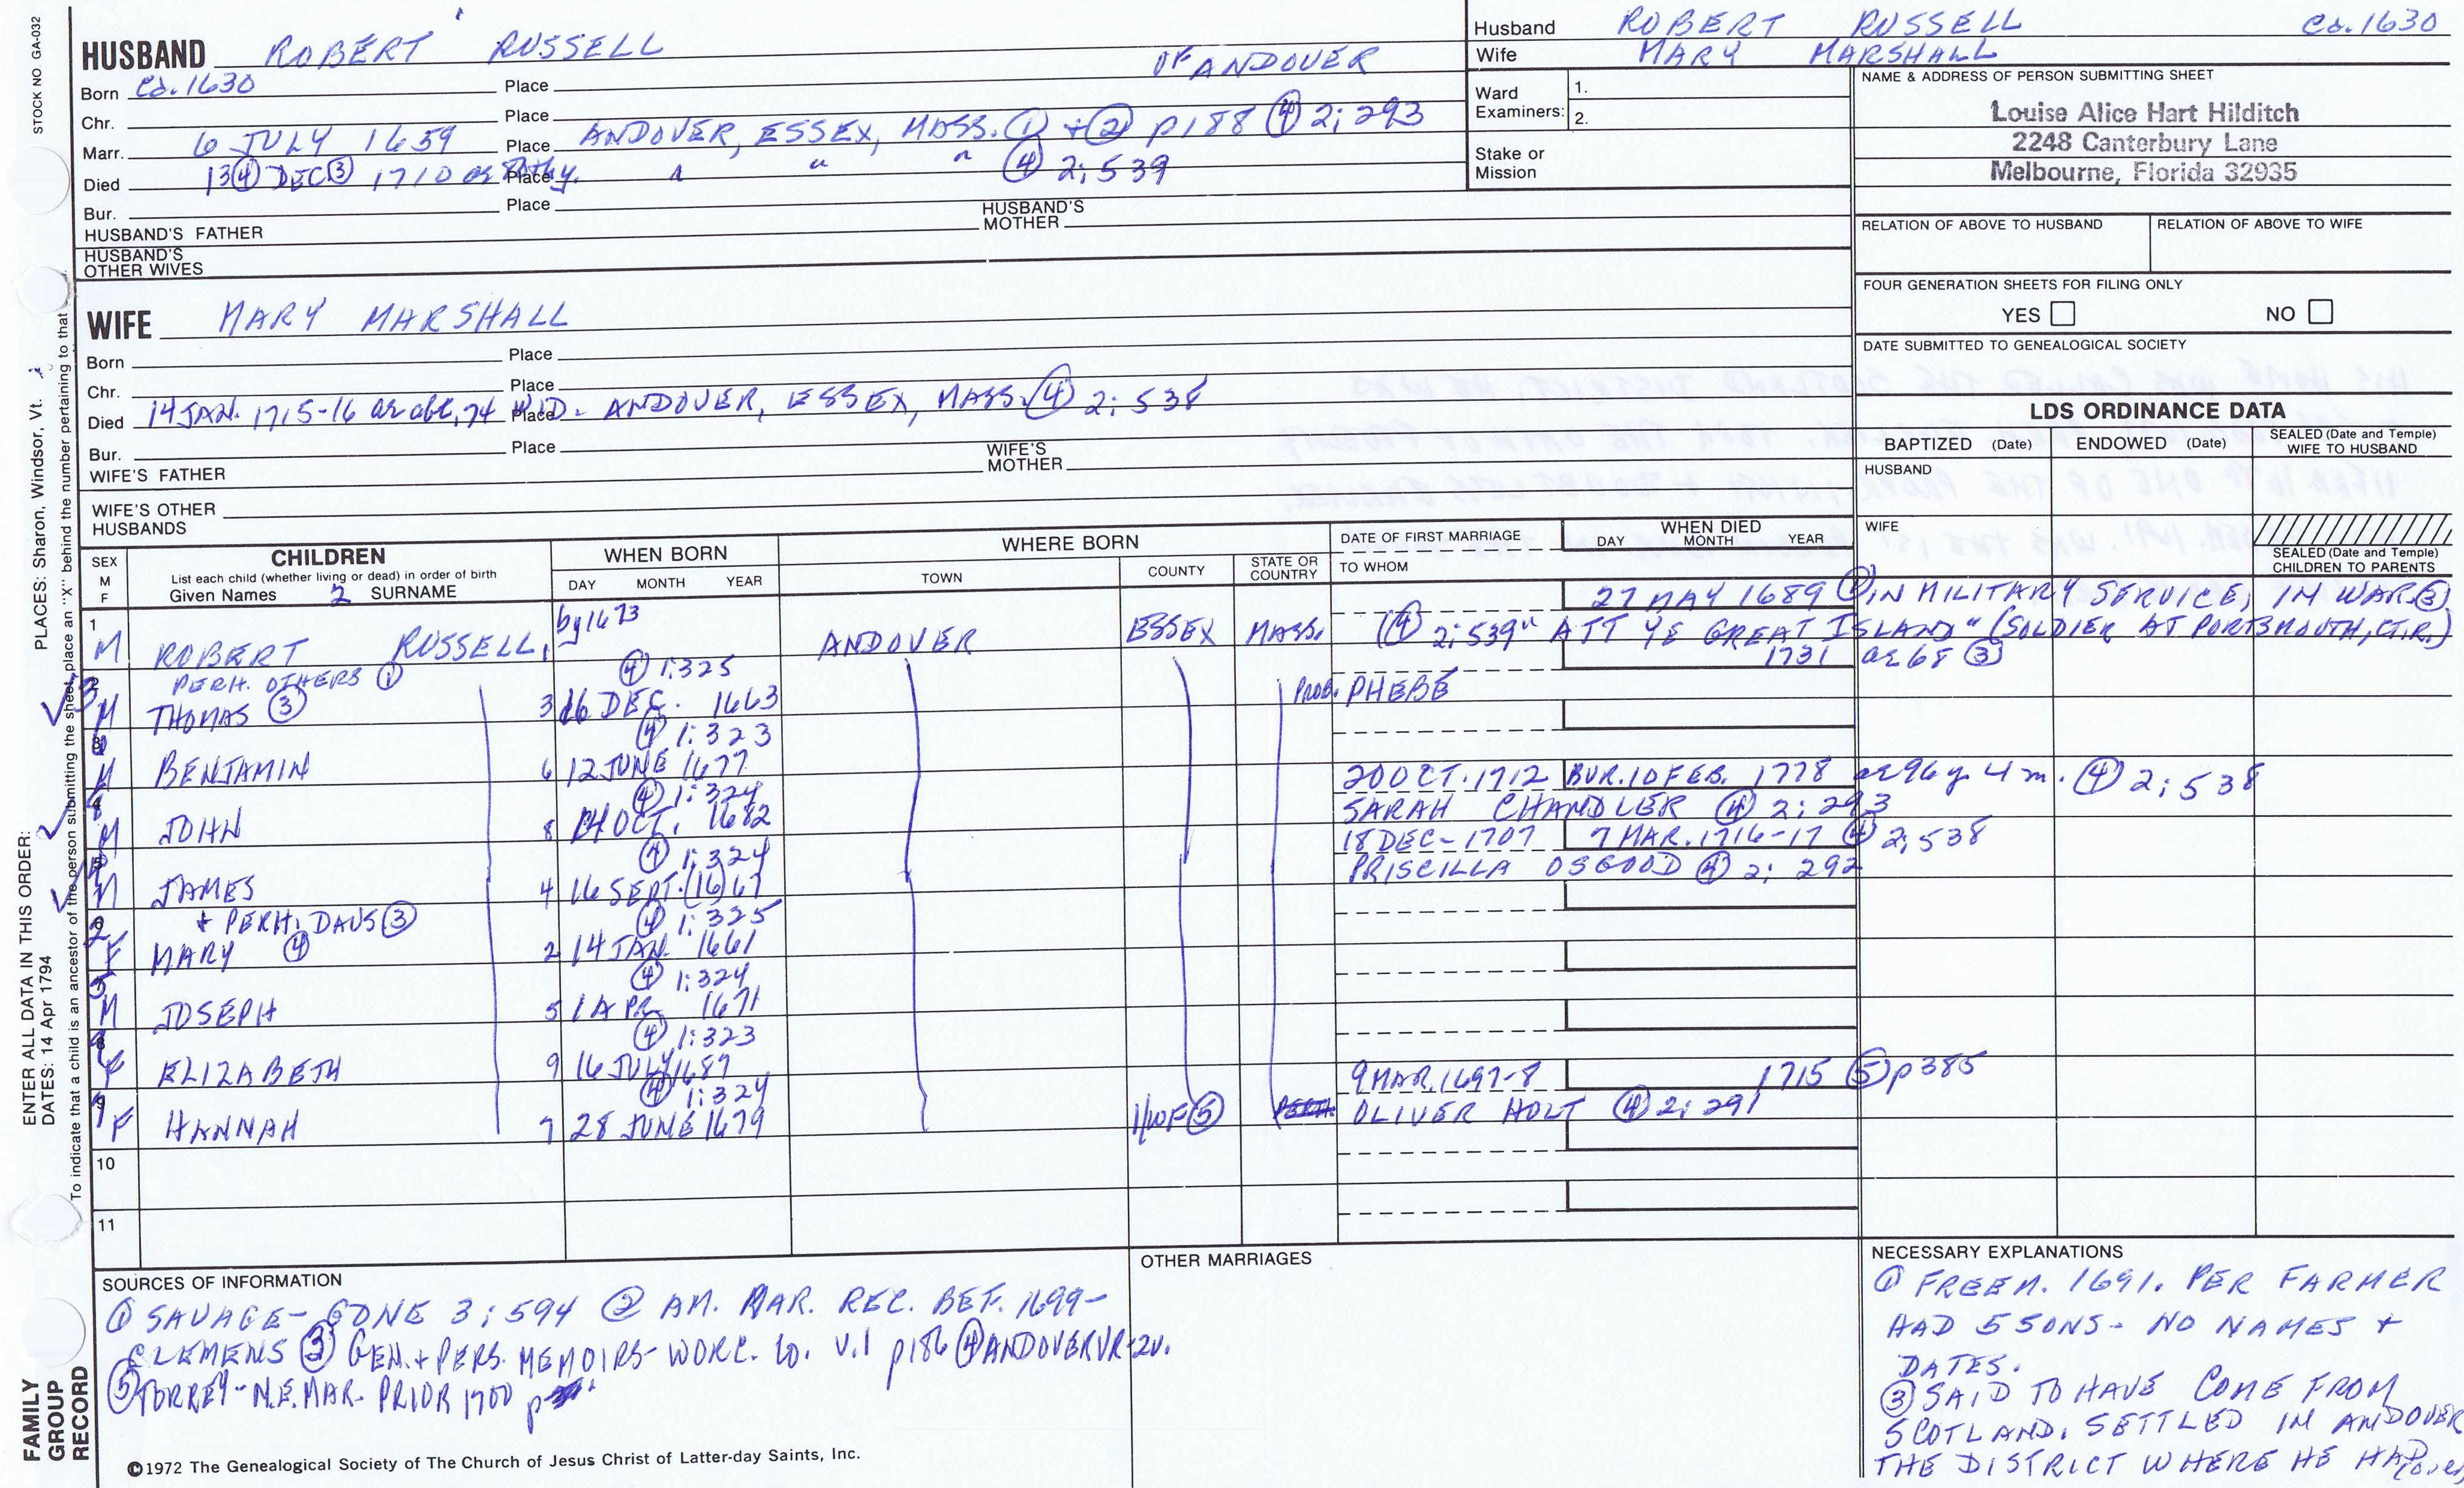 STOCK NO GA-032
HUSBAND ROBERT RUSSELL OF ANDOVER
Born Ca. 1630 Place
Chr. Place
Marr. 6 JULY 1659 Place ANDOVER, ESSEX, MASS. ① + ② p188 ④ 2:293
Died 13④ DEC③ 1710 Place " " " ④ 2:539
Bur. Place
HUSBAND'S FATHER HUSBAND'S MOTHER
HUSBAND'S OTHER WIVES
Husband ROBERT RUSSELL Ca. 1630
Wife MARY MARSHALL
Ward Examiners: 1.
2.
Stake or Mission
NAME & ADDRESS OF PERSON SUBMITTING SHEET
Louise Alice Hart Hilditch
2248 Canterbury Lane
Melbourne, Florida 32935
RELATION OF ABOVE TO HUSBAND RELATION OF ABOVE TO WIFE
FOUR GENERATION SHEETS FOR FILING ONLY
YES NO
DATE SUBMITTED TO GENEALOGICAL SOCIETY
WIFE MARY MARSHALL
Born Place
Chr. Place
Died 14 JAN. 1715-16 ae abt. 74 WID. Place ANDOVER, ESSEX, MASS. ④ 2:538
Bur. Place
WIFE'S FATHER WIFE'S MOTHER
WIFE'S OTHER HUSBANDS
LDS ORDINANCE DATA
BAPTIZED (Date) ENDOWED (Date) SEALED (Date and Temple) WIFE TO HUSBAND
HUSBAND
WIFE
SEALED (Date and Temple) CHILDREN TO PARENTS
SEX M F
CHILDREN
List each child (whether living or dead) in order of birth
Given Names 2 SURNAME
WHEN BORN
DAY MONTH YEAR
WHERE BORN
TOWN COUNTY STATE OR COUNTRY
DATE OF FIRST MARRIAGE
TO WHOM
WHEN DIED
DAY MONTH YEAR
1 by 1673 27 MAY 1689 ① IN MILITARY SERVICE, IN WAR③
M ROBERT RUSSELL, ANDOVER ESSEX MASS. (④ 2:539 " ATT YE GREAT ISLAND" (SOLDIER AT PORTSMOUTH, CT.R.)
2 PERH. OTHERS ① ④ 1:325 1731 ae 68 ③
M THOMAS ③ 3 16 DEC. 1663 PROB. PHEBE
④ 1:323
M BENJAMIN 6 12 JUNE 1677
④ 1:324 20 OCT. 1712 BUR. 10 FEB. 1778 ae 96 y. 4 m. ④ 2:538
M JOHN 8 14 OCT. 1682 SARAH CHANDLER ④ 2:293
④ 1:324 18 DEC- 1707 7 MAR. 1716-17 ④ 2:538
M JAMES 4 16 SEPT. (16)67 PRISCILLA OSGOOD ④ 2:292
+ PERH. DAUS ③ ④ 1:325
F MARY ④ 2 14 JAN. 1661
④ 1:324
M JOSEPH 5 1 APR. 1671
④ 1:323
ELIZABETH 9 16 JULY 1687
④ 1:324 9 MAR. 1697-8 1715 ⑤ p385
F HANNAH 7 28 JUNE 1679 1/WF⑤ OLIVER HOLT ④ 2:291
10
11
SOURCES OF INFORMATION
① SAVAGE- GDNE 3:594 ② AM. MAR. REC. BEF. 1699-
CLEMENS ③ GEN. + PERS. MEMOIRS- WORC. Co. V.1 p186 ④ ANDOVER VR-2v.
⑤ TORREY- N.E. MAR. PRIOR 1700 p
OTHER MARRIAGES
NECESSARY EXPLANATIONS
① FREEM. 1691. PER FARMER
HAD 5 SONS- NO NAMES +
DATES.
③ SAID TO HAVE COME FROM
SCOTLAND. SETTLED IN ANDOVER
THE DISTRICT WHERE HE HAD (over)
©1972 The Genealogical Society of The Church of Jesus Christ of Latter-day Saints, Inc.
FAMILY GROUP RECORD
ENTER ALL DATA IN THIS ORDER:
DATES: 14 Apr 1794
PLACES: Sharon, Windsor, Vt.
To indicate that a child is an ancestor of the person submitting the sheet, place an "X" behind the number pertaining to that